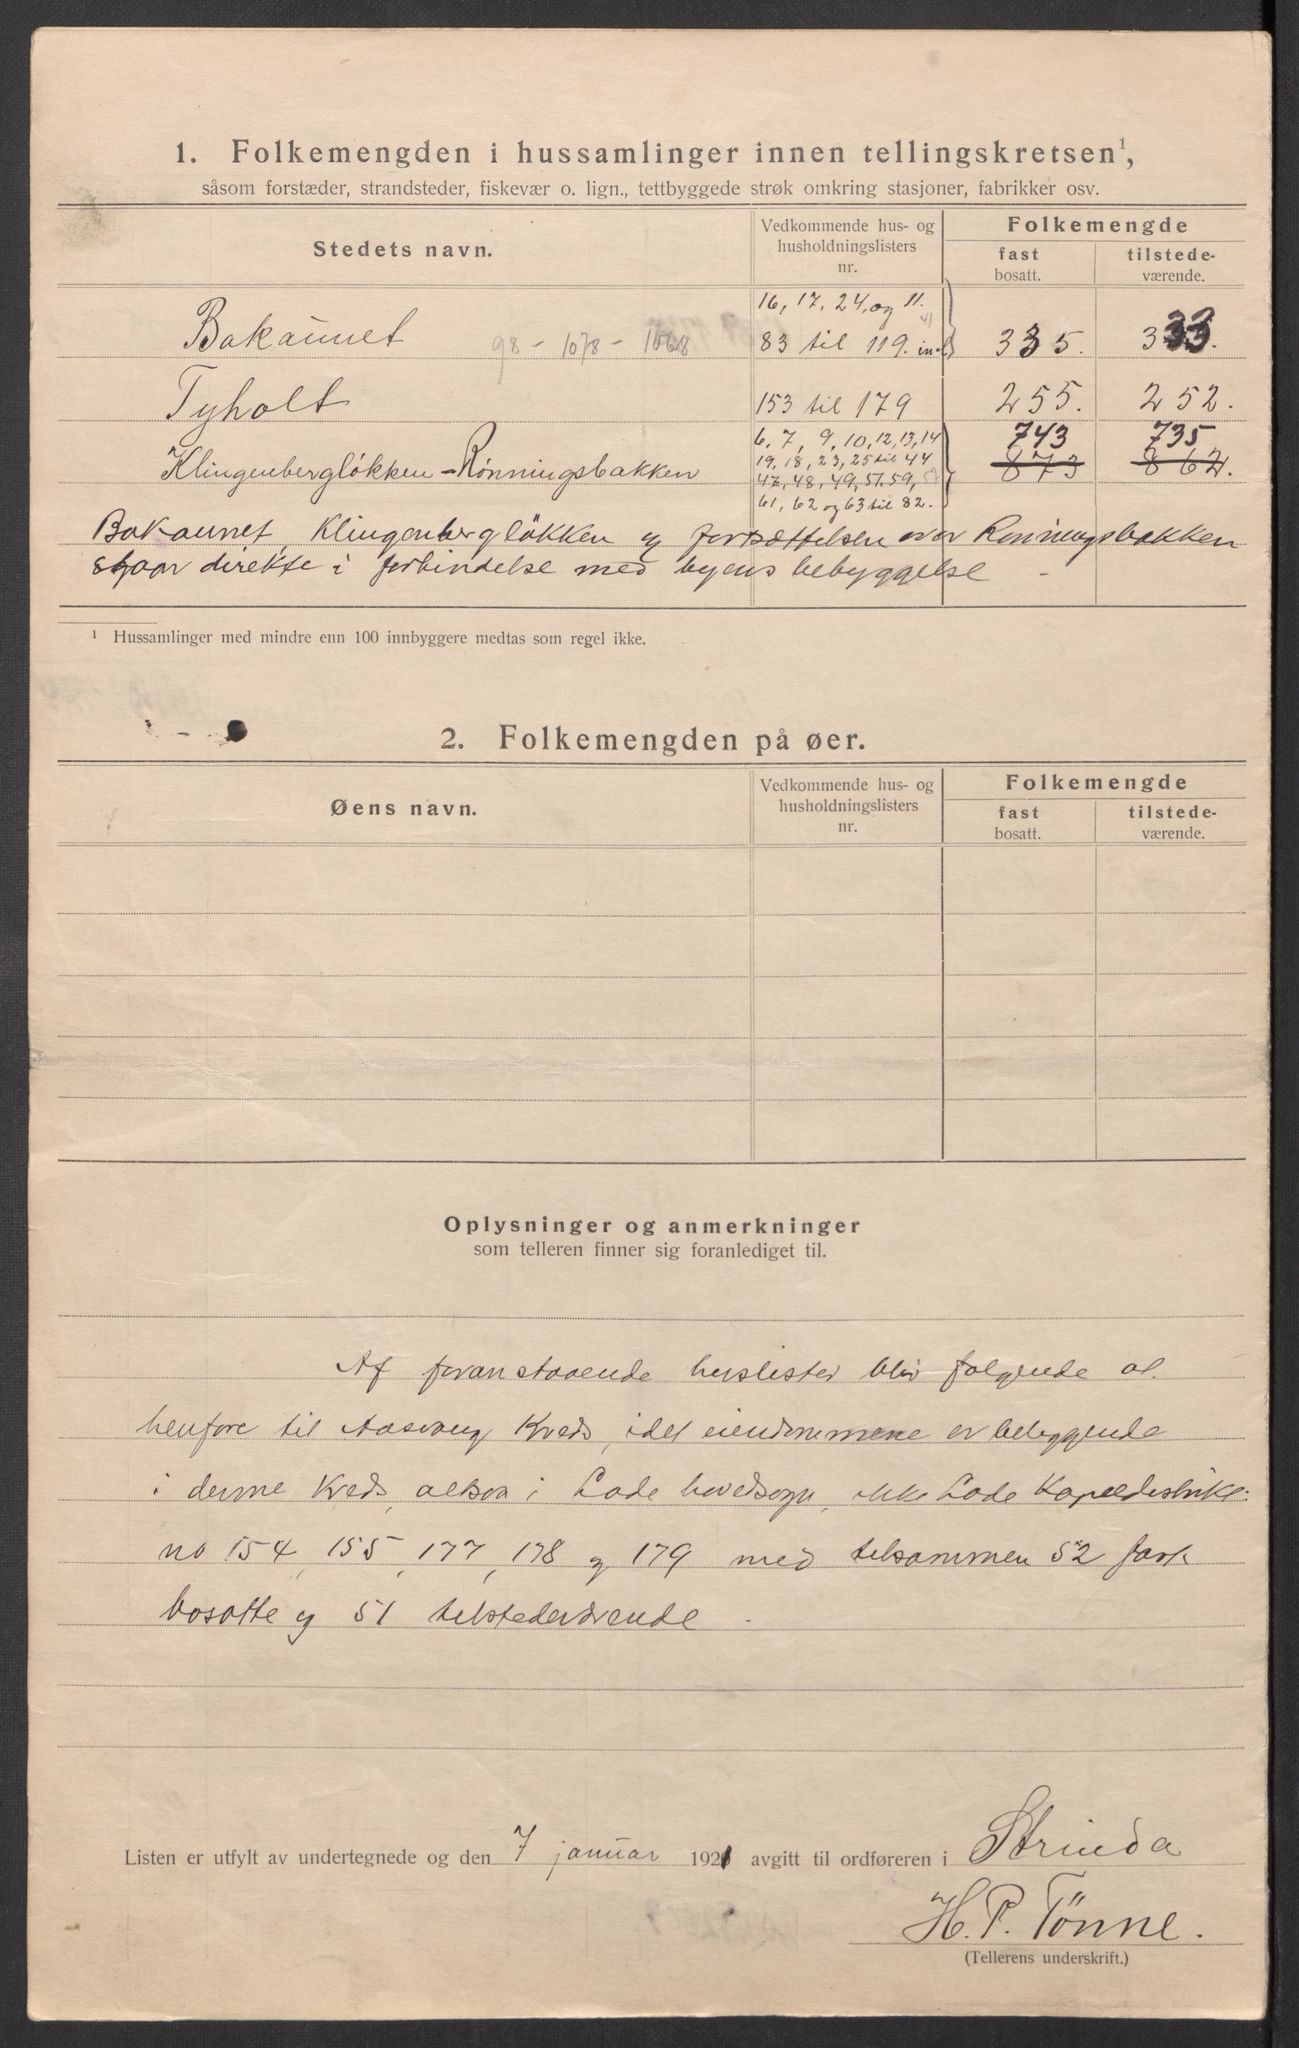 1. Folkemengden i hussamlinger innen tellingskretsen¹,
såsom forstæder, strandsteder, fiskevær o. lign., tettbyggede strøk omkring stasjoner, fabrikker osv.
Stedets navn.
Vedkommende hus- og
husholdningslisters
nr.
Folkemengde
fast
bosatt.
tilstede-
værende.
16, 17, 24, og 11.
Bakaunet 98 - 1078 - 1068 83 til 119. incl 335. 333.
Tyholt 153 til 179 255. 252.
6, 7, 9, 10, 12, 13, 14 743 735
Klingenbergløkken - Rønningsbakken 19, 18, 23, 25 til 44 873 862.
47, 48, 49, 57, 59,
61, 62 og 63 til 82.
Bakaunet, Klingenbergløkken og fortsættelsen over Rønningsbakken
staar direkte i forbindelse med byens bebyggelse -
¹ Hussamlinger med mindre enn 100 innbyggere medtas som regel ikke.
2. Folkemengden på øer.
Øens navn.
Vedkommende hus- og
husholdningslisters
nr.
Folkemengde
fast
bosatt.
tilstede-
værende.
Oplysninger og anmerkninger
som telleren finner sig foranlediget til.
Af foranstaaende huslister blir følgende at
henføre til Aasvang Kreds, idet eiendommene er beliggende
i denne Kreds, altsaa i Lade hovedsogn, ikke Lade Kapeldistrikt:
no 154, 155, 177, 178 og 179 med tilsammen 52 fast
bosatte og 51 tilstedeværende.
Listen er utfylt av undertegnede og den 7 januar 1921 avgitt til ordføreren i Strinda
H. P. Tönne.
(Tellerens underskrift.)